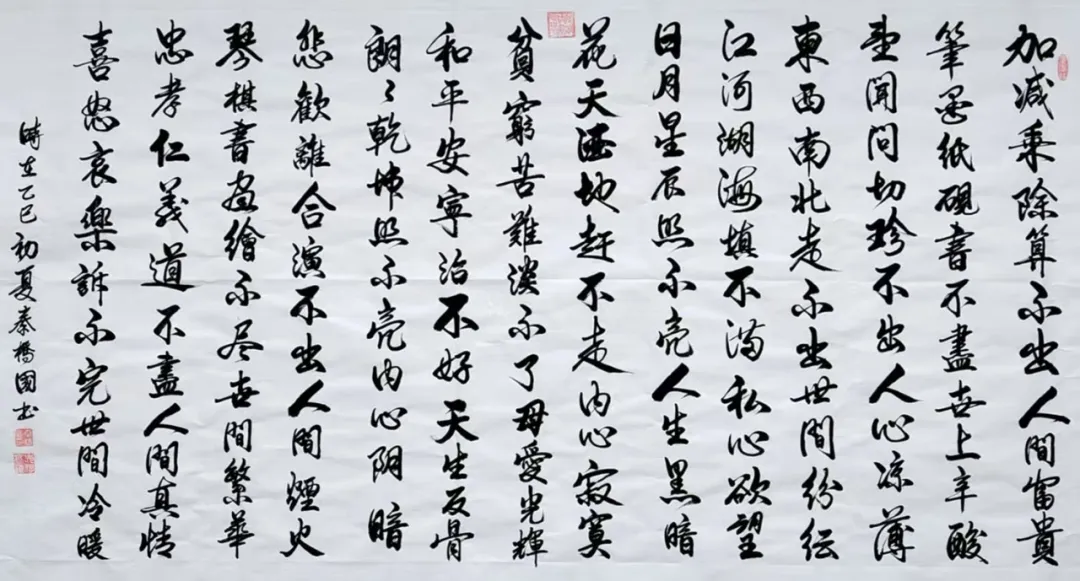 加减乘除算不出人間富貴
筆墨紙硯書不盡世上辛酸
望聞问切珍不出人心凉薄
東西南北走不出世間纷纭
江河湖海填不满私心欲望
日月星辰照不亮人生黑暗
花天酒地赶不走内心寂寞
貧窮苦難淡不了母愛光輝
和平安寧治不好天生反骨
朗々乾坤照不亮内心阴暗
悲歡離合演不出人間煙火
琴棋書画繪不尽世間繁華
忠孝仁義道不盡人間真情
喜怒哀樂訴不完世間冷暖
時在乙巳初夏秦橋國书